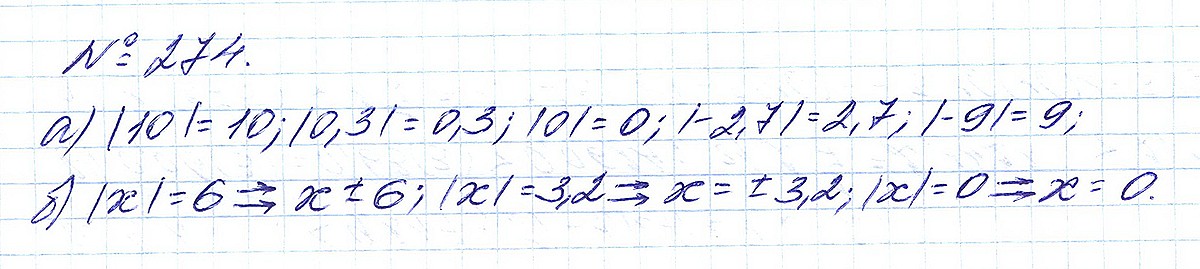 № 274.
а) |10|=10; |0,3|=0,3; |0|=0; |-2,7|=2,7; |-9|=9;
б) |x|=6 ⇒ x ± 6; |x|=3,2 ⇒ x = ± 3,2; |x|=0 ⇒ x = 0.